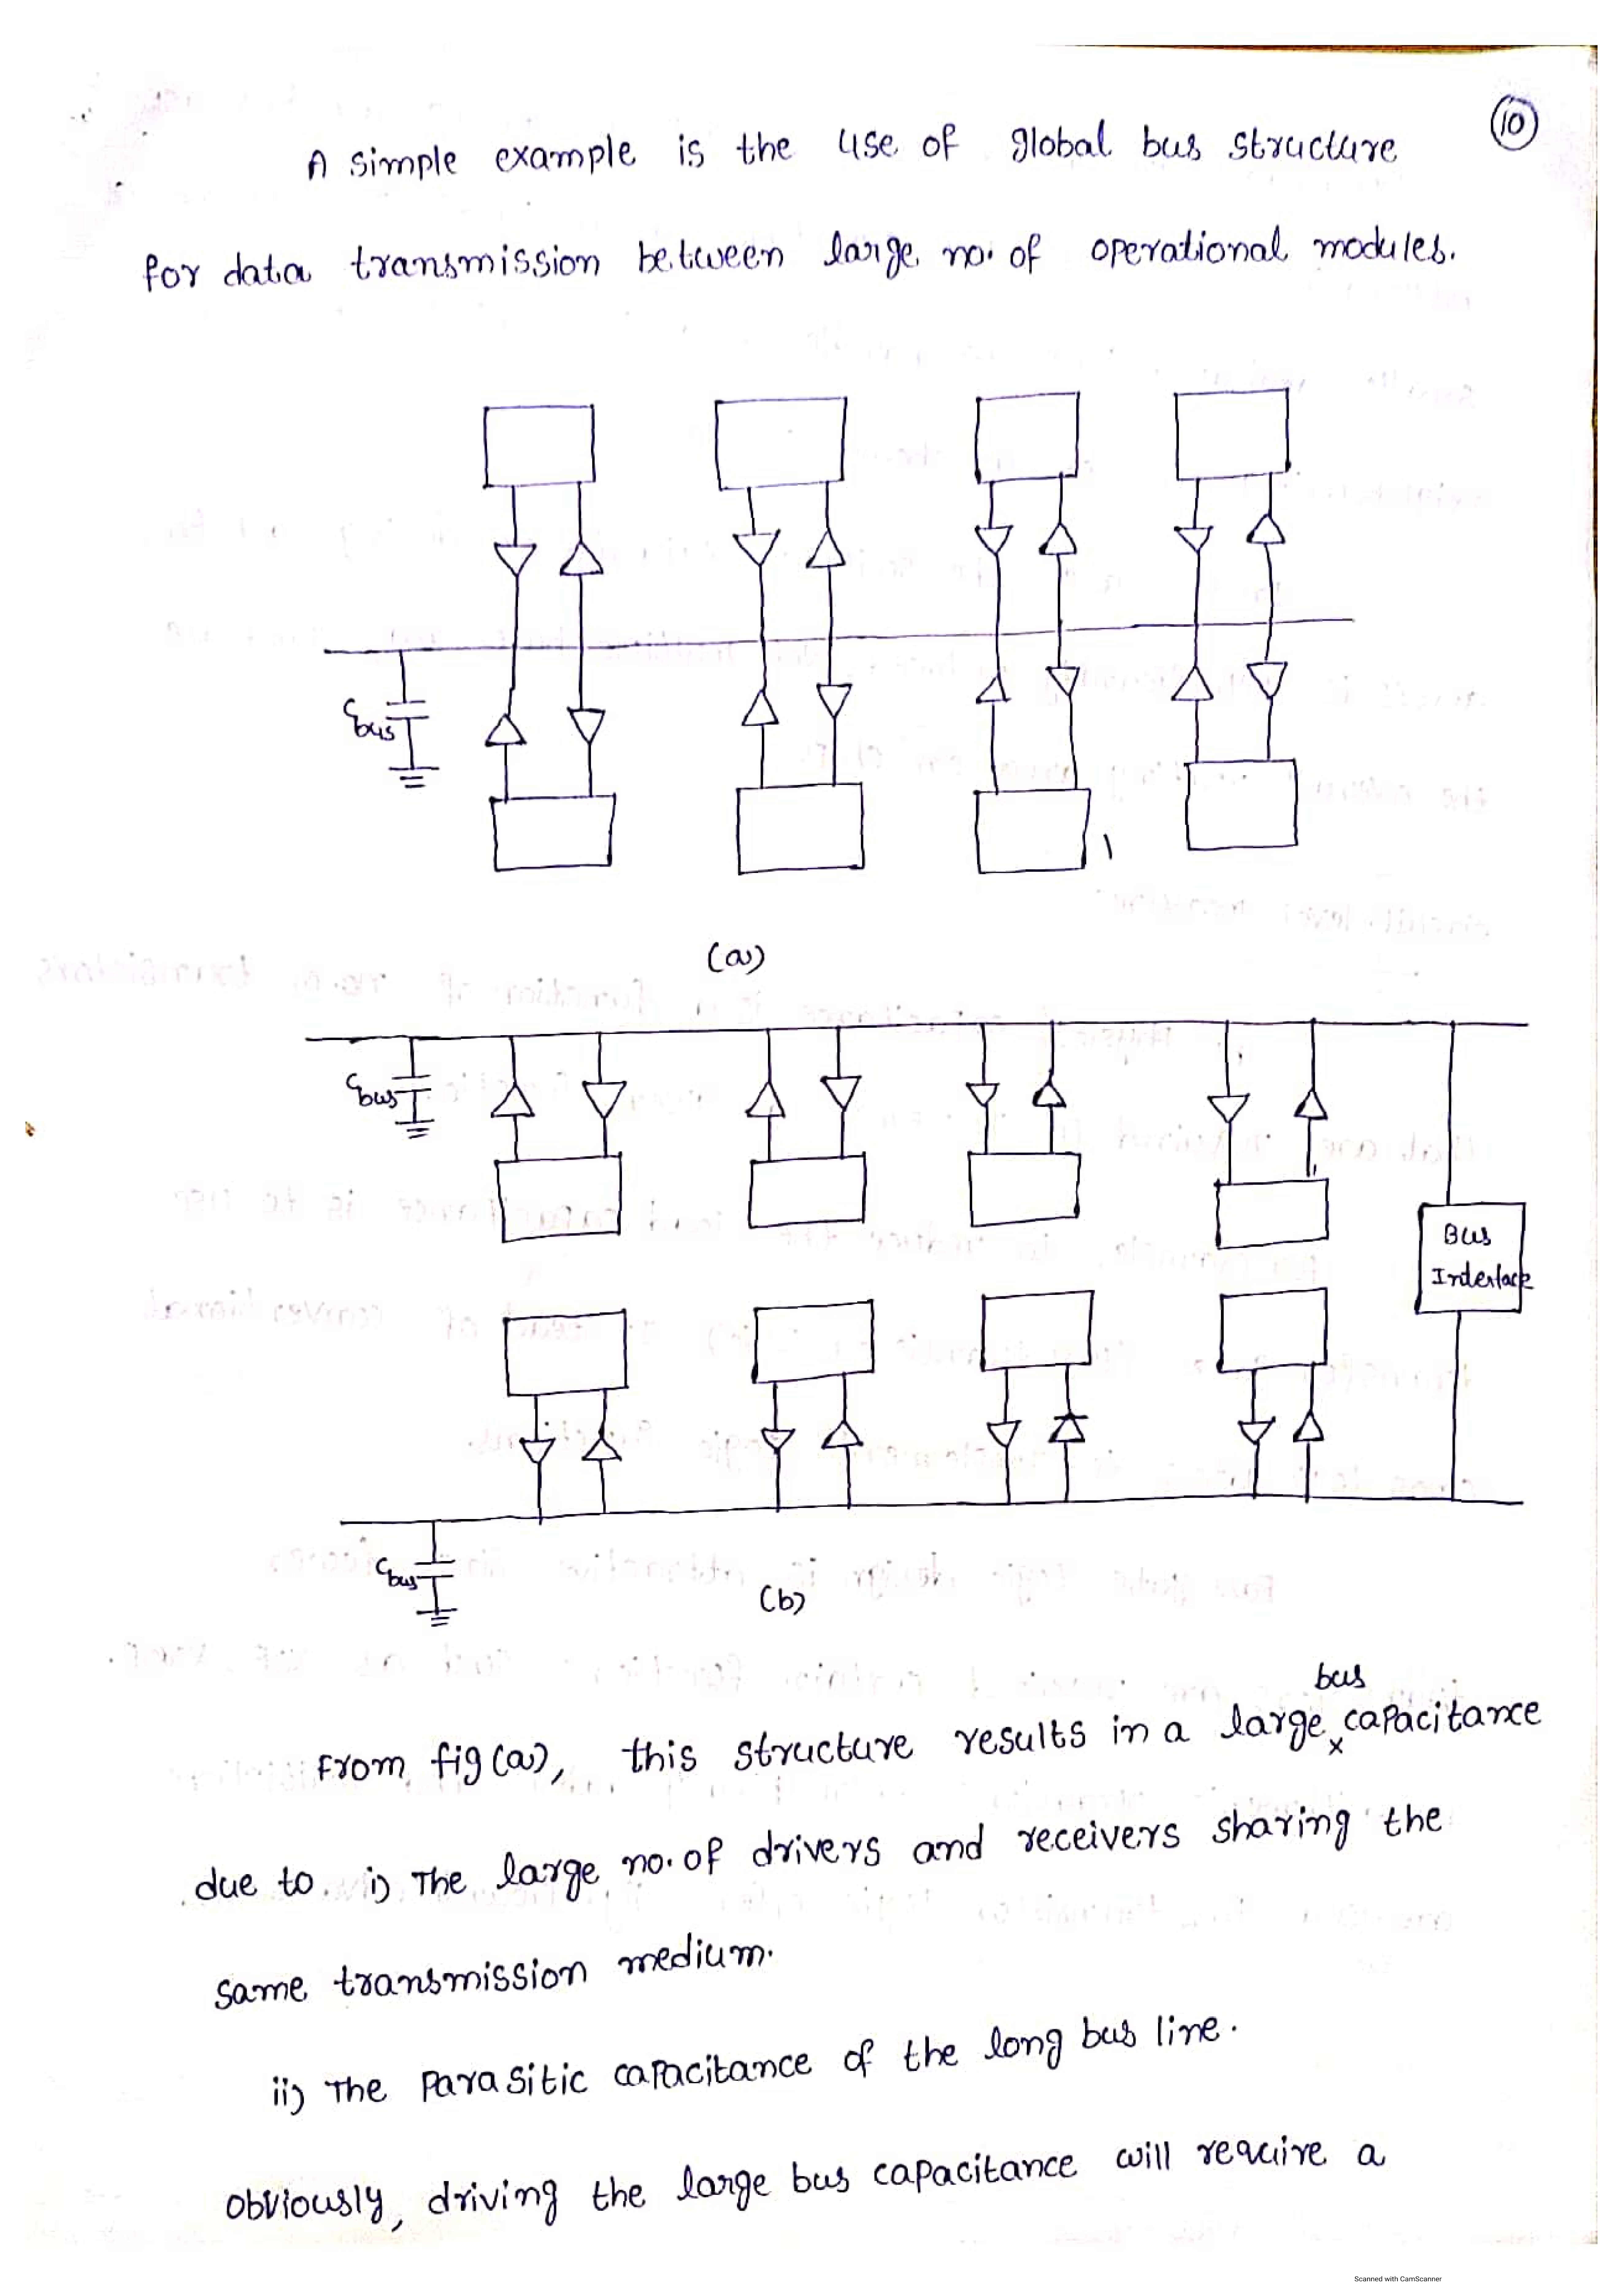 10
A simple example is the use of global bus structure
for data transmission between large no. of operational modules.
Cbus
(a)
Cbus
Bus
Interface
Cbus
(b)
bus
From fig (a), this structure results in a large x capacitance
due to. i) The large no. of drivers and receivers sharing the
same transmission medium.
ii) The Parasitic capacitance of the long bus line.
obviously, driving the large bus capacitance will require a
Scanned with CamScanner